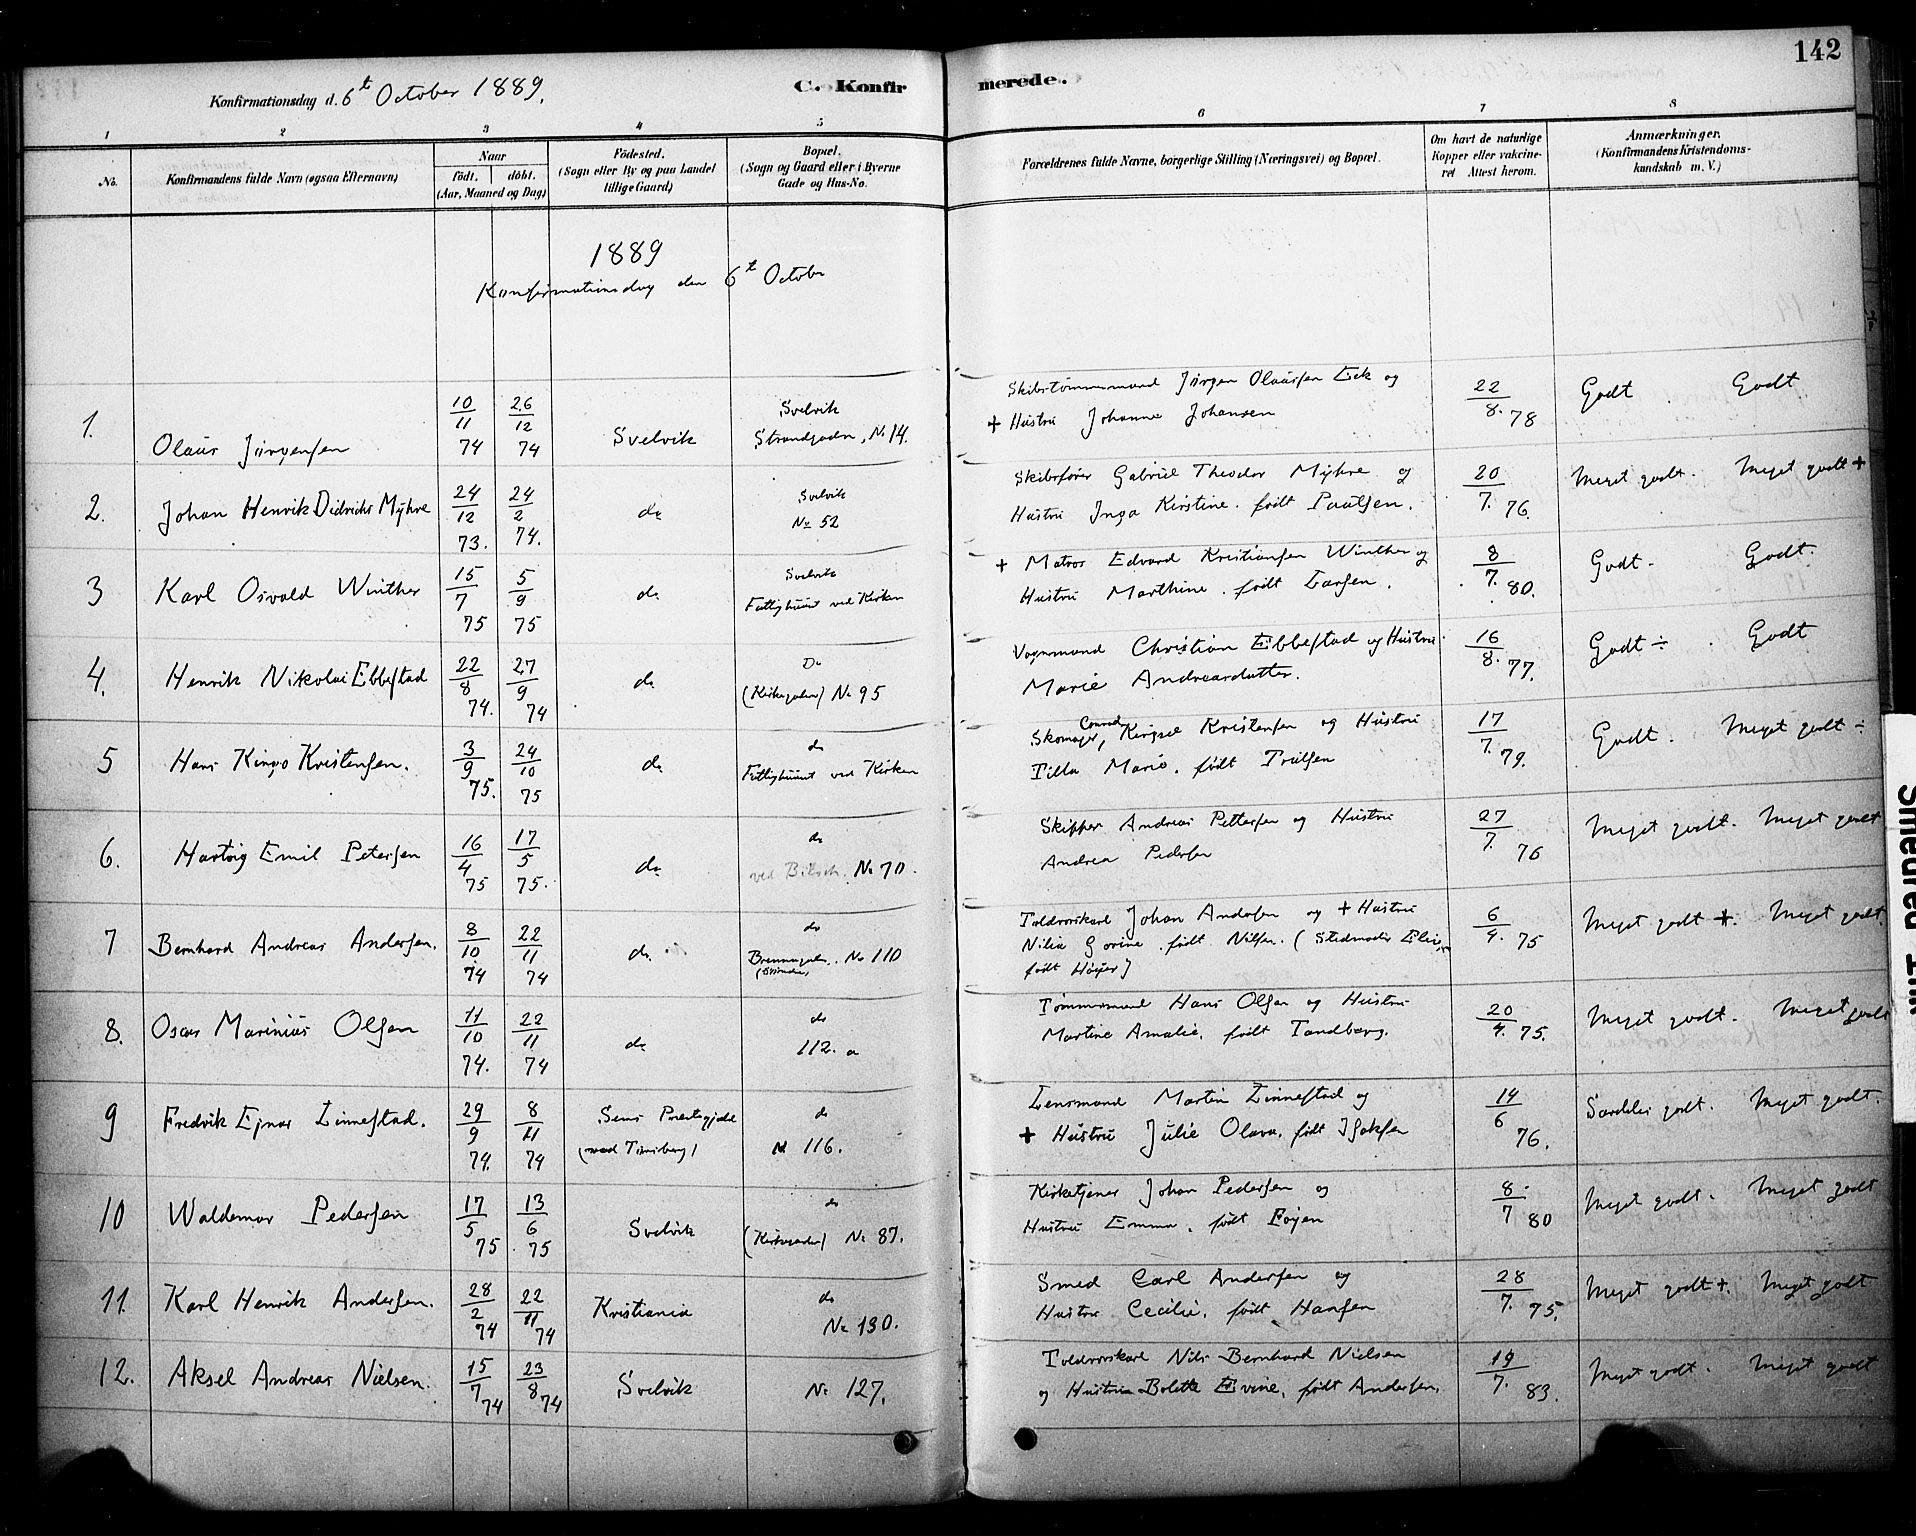 142
Konfirmationsdag d. 6t October 1889.
C. Konfirmerede.
1 2 3 4 5 6 7 8
No.
Konfirmandens fulde Navn (ogsaa Efternavn)
Naar
födt. döbt.
(Aar, Maaned og Dag)
Födested.
(Sogn eller By og paa Landet
tillige Gaard)
Bopæl.
(Sogn og Gaard eller i Byerne
Gade og Hus-No.
Forældrenes fulde Navne, borgerlige Stilling (Næringsvei) og Bopæl.
Om havt de naturlige
Kopper eller vakcine-
ret Attest herom.
Anmærkninger.
(Konfirmandens Kristendoms-
kundskab m. V.)
1889
Konfirmationsdag den 6t October
1. Olaus Jörgensen 10/11 74 26/12 74 Svelvik Svelvik Strandgaden, No 14.
Skibstømmermand Jörgen Olaussen Eck og
+ Hustru Johanne Johansen 22/8. 78 Godt . Godt
2. Johan Henrik Didrichs Myhre 24/12 73. 24/2 74. do Svelvik No 52
Skibsfører Gabriel Theodor Myhre og
Hustru Inga Kirstine. født Paulsen. 20/7. 76. Meget godt. Meget godt +
3 Karl Osvald Winther 15/7 75 5/9 75 do Svelvik Fattighuset ved Kirken
+ Matros Edvard Kristiansen Winther og
Hustru Marthine. født Larsen. 8/7. 80. Godt. Godt.
4. Henrik Nikolai Ebbestad 22/8 74. 27/9 74 do Do (Kirkegaden) No 95
Vognmand Christian Ebbestad og Hustru
Marie Andreasdatter. 16/8. 77. Godt ÷ . Godt
5 Hans Kingo Kristensen. 3/9 75. 24/10 75 do do Fattighuset ved Kirken
Conrad
Skomager, Kristensen og Hustru
Marie. født Trulsen 17/7. 79. Godt. Meget godt ÷
6. Hartvig Emil Petersen 16/4 75 17/5 75. do do ved No 70.
Skipper Andreas Pettersen og Hustru
Andrea Pedersen 27/7. 76 Meget godt. Meget godt
7 Bernhard Andreas Andersen. 8/10 74 22/11 74 do. do No 110
Toldrorskarl Johan Andersen og + Hustru
Nilia Gorine. født Nilsen. (Stedmoder
født Höyer) 6/4. 75 Meget godt +. Meget godt.
8. Oscar Marinius Olsen 11/10 74. 22/11 74 do do 112. a
Tömmermand Hans Olsen og Hustru
Martine Amalie. født Tandberg. 20/4. 75. Meget godt. Meget godt
9 Fredrik Ejnar Linnestad. 29/9 74. 8/11 74 Sems Præstegjeld do N 116.
Lensmand Martin Linnestad og
+ Hustru Julie Olava. født Isaksen 14/6 76. Særdeles godt. Meget godt.
10 Waldemar Pedersen 17/5 75 13/6 75 Svelvik do (Kirkegaden) No 87.
Kirketjener Johan Pedersen og
Hustru Emma. født Foyen 8/7 80 Meget godt. Meget godt
11. Karl Henrik Andersen. 28/2 74 22/11 74 Kristiania do No 130.
Smed Carl Andersen og
Hustru Cecilie. født Hansen 28/7. 75. Meget godt +. Meget godt
12. Aksel Andreas Nielsen. 15/7 74 23/8 74 Svelvik No 127.
Toldrorskarl Nils Bernhard Nielsen
og Hustru Bolette Evine, født Andersen. 19/7. 83. Meget godt. Meget godt